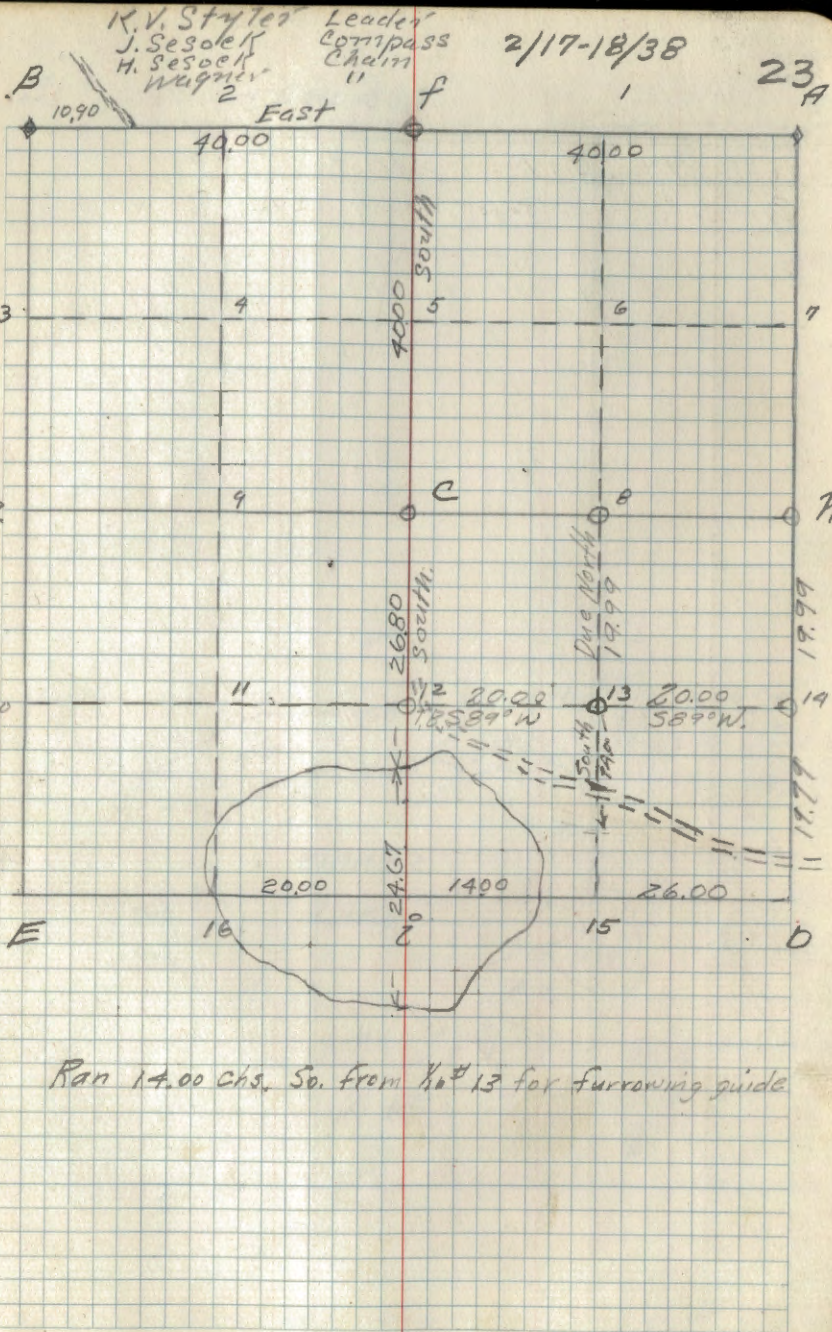 K.V. Styler Leader
J. Sesock Compass
H. Sesock Chain
Wagner "
2/17-18/38
23
B 10.90 2 East f 1 A
40.00 40.00
South
40.00
3 4 5 6 7
9 C 8
26.80 South
Due North 19.99
19.99
11 12 20.00 13 20.00 14
S89°W S89°W.
South
19.99
24.67
20.00 14.00 26.00
E 16 15 D
Ran 14.00 chs. So. from 1/16 #13 for furrowing guide